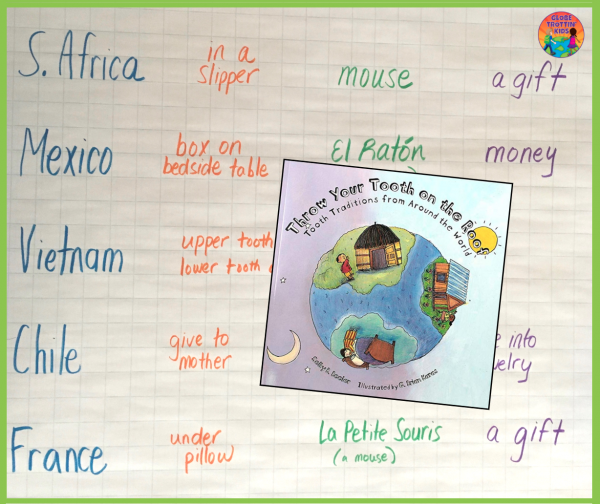 GLOBE
TROTTIN'
KIDS
S. Africa
in a
slipper
mouse
a gift
Mexico
box on
bedside table
El Ratón
money
Throw Your Tooth on the Roof
Tooth Traditions from Around the World
Vietnam
upper tooth
lower tooth
Chile
give to
mother
into
Selby B. Beeler
Illustrated by G. Brian Karas
France
under
pillow
La Petite Souris
(a mouse)
a gift